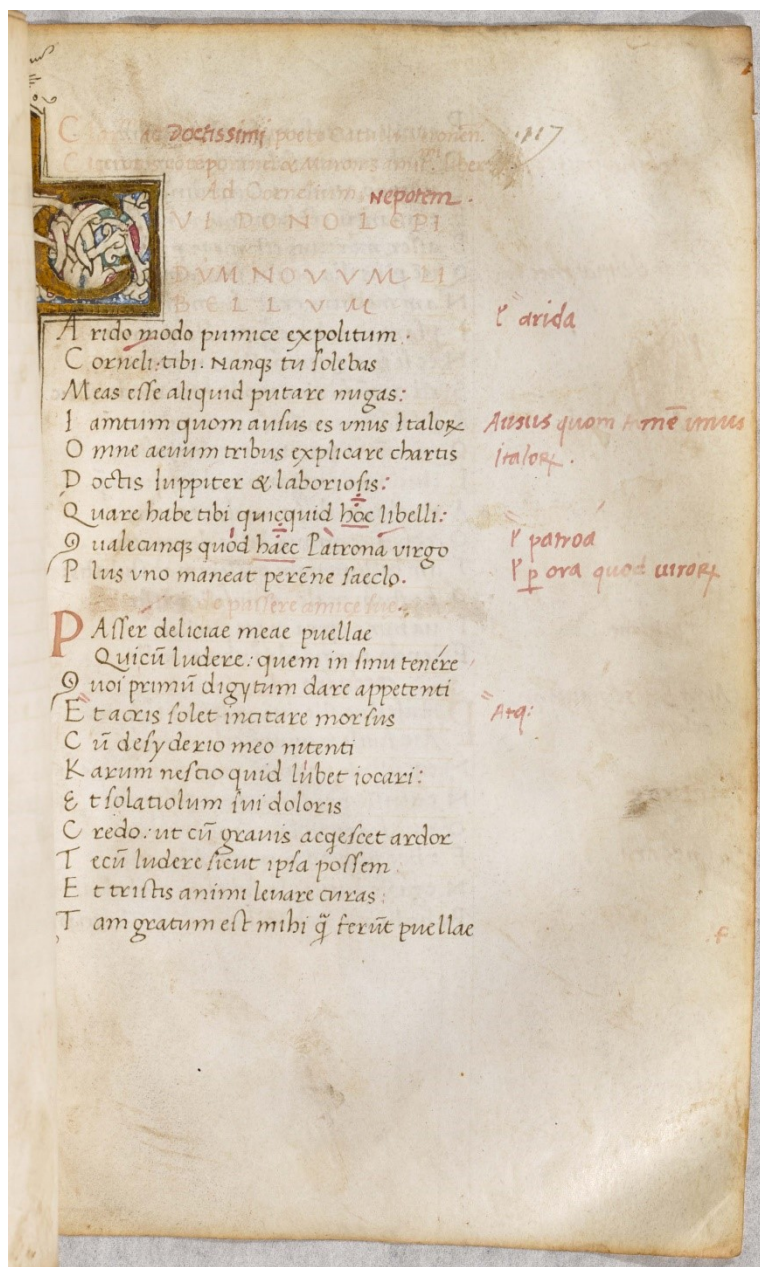 Doctissimi
117
Ad Cornelium Nepotem.
VI DONO LEPI
DVM NOVVM LI
BELLVM
Arido modo pumice expolitum.
Corneli: tibi. Nanqꝫ tu solebas
Meas esse aliquid putare nugas:
Iamtum quom ausus es vnus Italoꝝ
Omne aeuum tribus explicare chartis
Doctis Iuppiter & laboriosis:
Quare habe tibi quicquid hoc libelli:
Qualecunqꝫ quod haec Patrona virgo
Plus vno maneat perenne saeclo.
passere
PAsser deliciae meae puellae
Quicū ludere: quem in sinu tenere
Quoi primū digytum dare appetenti
Et acris solet incitare morsus
Cū desyderio meo nitenti
Karum nescio quid lubet iocari:
Et solatiolum sui doloris
Credo: ut cū grauis acqescet ardor
Tecū ludere sicut ipsa possem
Et tristis animi leuare curas:
Tam gratum est mihi q̄ ferūt puellae
arida
Ausus quom unus
Italoꝝ.
patroa
ꝑ ora quod uiroꝝ
Atq: